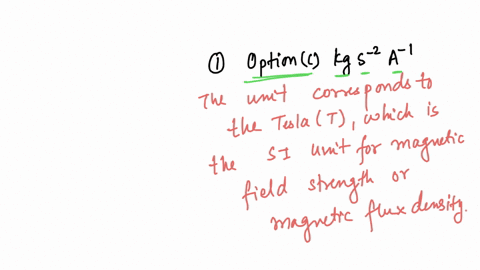 ① Option(c) kg s⁻² A⁻¹
The unit corresponds to
the Tesla (T), which is
the SI unit for magnetic
field strength or
magnetic flux density.